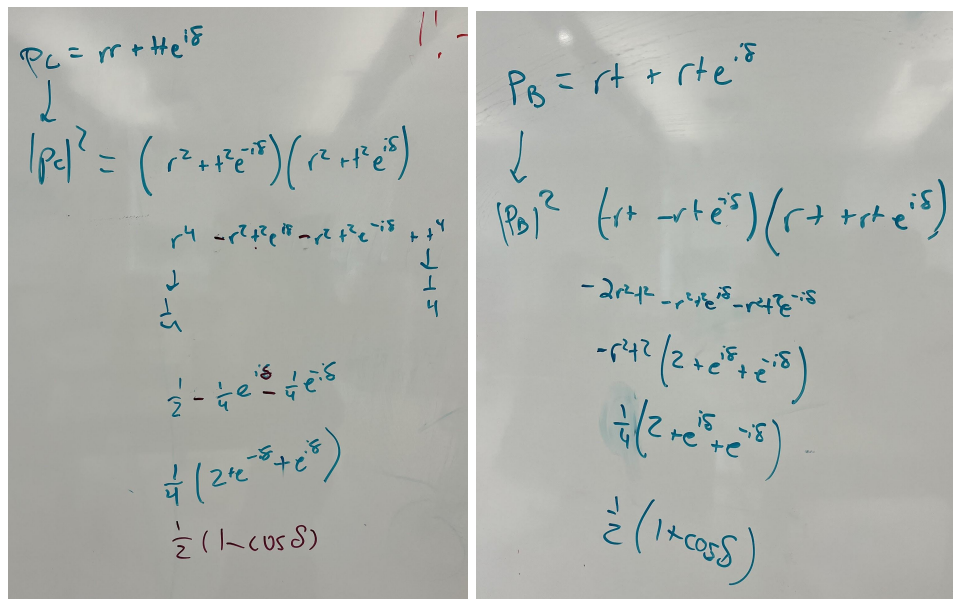 P_C = rr + tte^{iδ}
↓
|P_C|² = (r² + t²e^{-iδ})(r² + t²e^{iδ})
r⁴ - r²t²e^{iδ} - r²t²e^{-iδ} + t⁴
↓ ↓
1/4 1/4
1/2 - 1/4 e^{iδ} - 1/4 e^{-iδ}
1/4 (2 + e^{-iδ} + e^{iδ})
1/2 (1 - cos δ)
P_B = rt + rte^{iδ}
↓
|P_B|² (-rt - rte^{-iδ})(rt + rte^{iδ})
-2r²t² - r²t²e^{iδ} - r²t²e^{-iδ}
-r²t² (2 + e^{iδ} + e^{-iδ})
1/4 (2 + e^{iδ} + e^{-iδ})
1/2 (1 + cos δ)